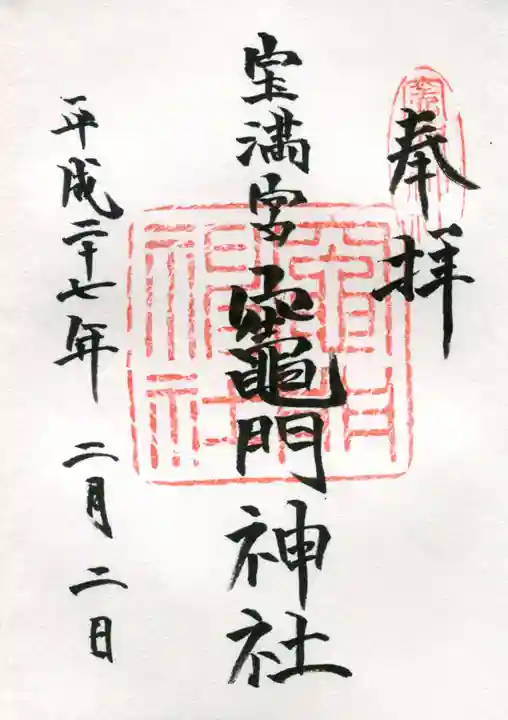 奉拝
宝満宮竈門神社
平成二十七年 二月二日